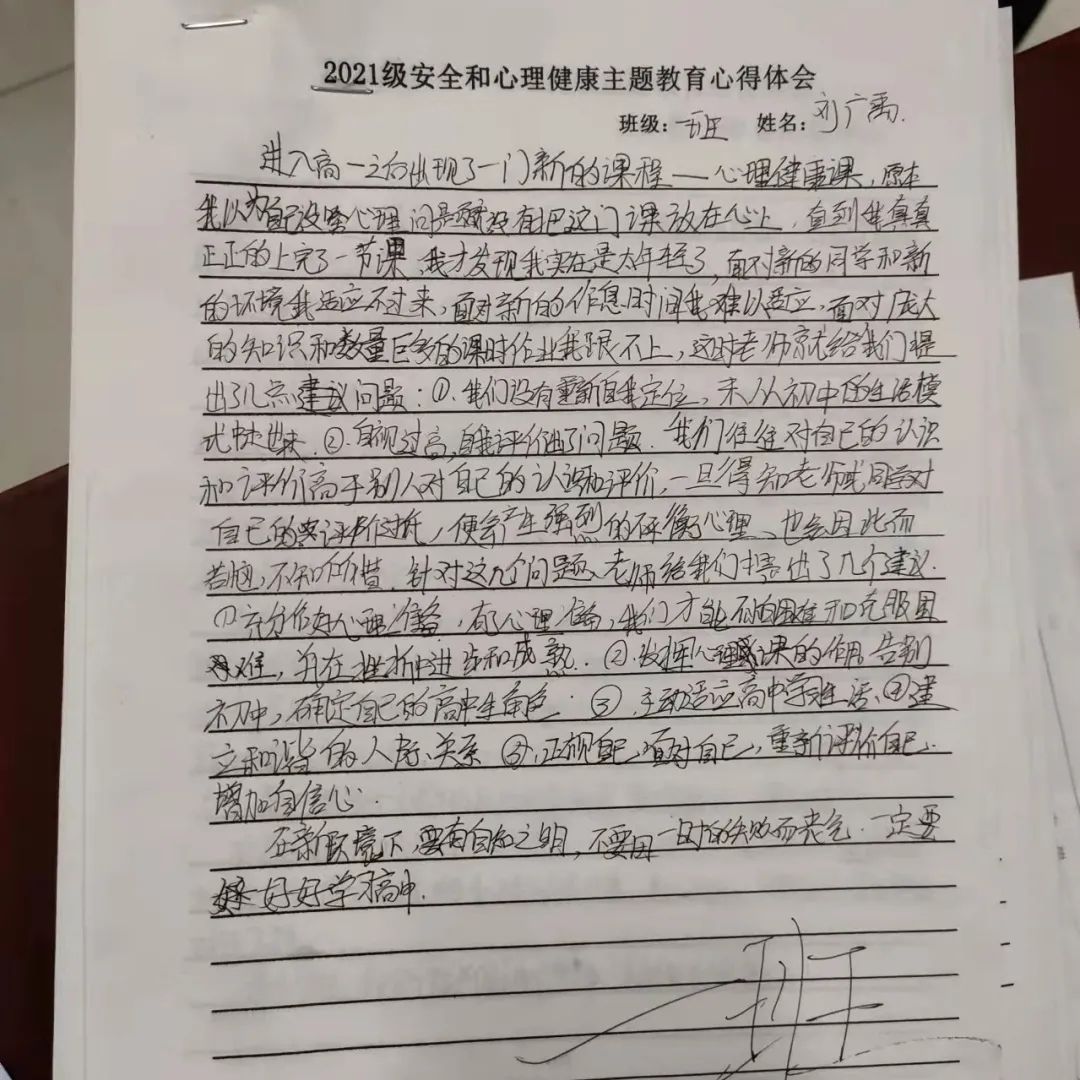 2021级安全和心理健康主题教育心得体会
班级：一班 姓名：刘广禹.
进入高一之后出现了一门新的课程——心理健康课，原本
我以为自己没啥心理问题就没有把这门课放在心上，直到我真真
正正的上完了一节课，我才发现我实在是太年轻了，面对新的同学和新
的环境我适应不过来，面对新的作息时间我难以适应，面对庞大
的知识和数量巨多的课时作业我跟不上，这时老师就给我们提
出了几点建议问题：①.我们没有重新自我定位，未从初中的生活模
式中走出来.②.自视过高，自我评价出了问题.我们往往对自己的认识
和评价高于别人对自己的认识和评价，一旦得知老师或同学对
自己的评价过低，便会产生强烈的 心理、也会因此而
苦恼，不知所措.针对这几个问题、老师给我们提出了几个建议.
①充分做好心理准备，有了心理准备，我们才能不怕困难和克服困
难，并在挫折中进步和成熟.②.发挥心理课的作用.告别
初中，确定自己的高中生角色.③.主动适应高中学习生活.④建
立和谐的人际关系⑤.正视自己，面对自己，重新评价自己.
增加自信心.
在新环境下，要有自知之明，不要因一时的失败而丧气.一定要
好好学习高中.
班